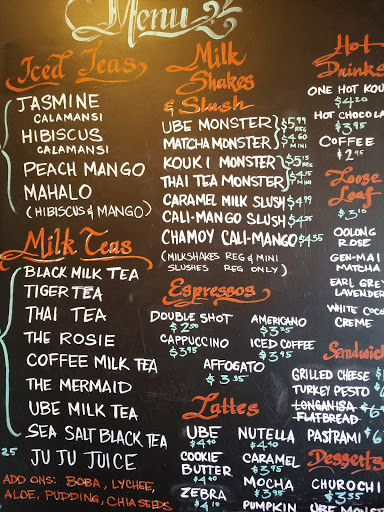 Menu
Iced Teas
JASMINE
CALAMANSI
HIBISCUS
CALAMANSI
PEACH MANGO
MAHALO
(HIBISCUS & MANGO)
Milk Teas
BLACK MILK TEA
TIGER TEA
THAI TEA
THE ROSIE
COFFEE MILK TEA
THE MERMAID
UBE MILK TEA
SEA SALT BLACK TEA
25
JU JU JUICE
ADD ONS: BOBA, LYCHEE,
ALOE, PUDDING, CHIA SEEDS
Milk
Shakes
& Slush
UBE MONSTER $5.99 REG
MATCHA MONSTER $4.60 MINI
KOUKI MONSTER $5.15 REG
THAI TEA MONSTER MINI
CARAMEL MILK SLUSH $4.99
CALI-MANGO SLUSH
CHAMOY CALI-MANGO $4.55
(MILKSHAKES REG & MINI
SLUSHES REG ONLY)
Espressos
DOUBLE SHOT
$2.50
AMERICANO
$3.35
CAPPUCCINO
$3.95
ICED COFFEE
$3.95
AFFOGATO
$3.95
Lattes
UBE
$4.40
NUTELLA
$4.40
COOKIE
BUTTER
$4.40
CARAMEL
$3.95
ZEBRA
$4.10
MOCHA
$3.95
PUMPKIN
Hot
Drinks
ONE HOT KOU
$4.20
HOT CHOCOLA
$3.95
COFFEE
$2.95
Loose
Leaf
$3.10
OOLONG
ROSE
GEN-MAI
MATCHA
EARL GREY
LAVENDER
WHITE COCO
CREME
Sandwic
GRILLED CHEESE
TURKEY PESTO $6
LONGANISA
FLATBREAD
PASTRAMI $6
Desserts
CHUROCHI
$3.95
UBE MONST